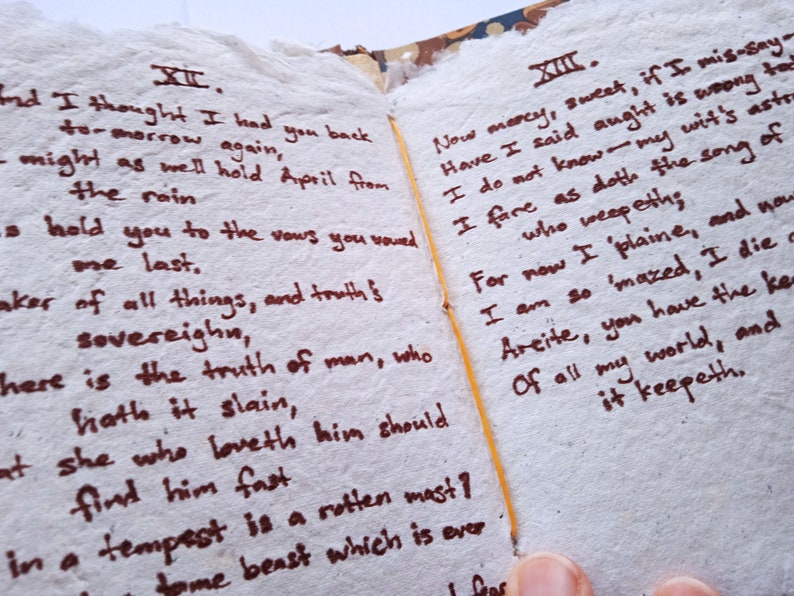 XII.
And I thought I had you back
to-morrow again,
might as well hold April from
the rain
hold you to the vows you vowed
me last.
of all things, and truth's
sovereighn,
is the truth of man, who
hath it slain,
she who loveth him should
find him fast
in a tempest is a rotten mast?
tame beast which is ever
XIII.
Now mercy, sweet, if I mis-say—
Have I said aught is wrong
I do not know—my wit's
I fare as doth the song of
who weepeth;
For now I 'plaine, and now
I am so 'mazed, I die
Arcite, you have the
Of all my world, and
it keepeth.